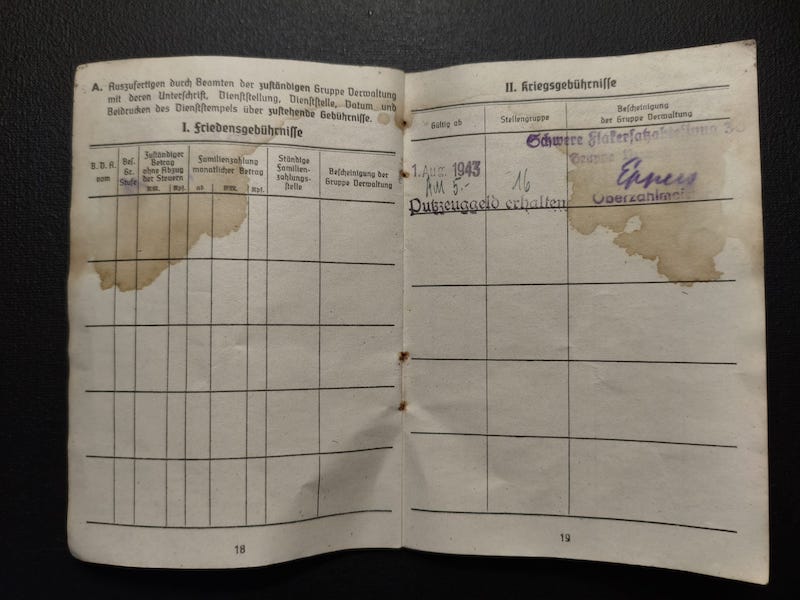 A. Auszufertigen durch Beamten der zuständigen Gruppe Verwaltung
mit deren Unterschrift, Dienststellung, Dienststelle, Datum und
Beidrucken des Dienststempels über zustehende Gebührnisse.
I. Friedensgebührnisse
B. D. A.
vom
Bes.
Gr.
Stufe
Zuständiger
Betrag
ohne Abzug
der Steuern
RM.
Rpf.
Familienzahlung
monatlicher Betrag
ab
RM.
Rpf.
Ständige
Familien-
zahlungs-
stelle
Bescheinigung der
Gruppe Verwaltung
18
II. Kriegsgebührnisse
Gültig ab
Stellengruppe
Bescheinigung
der Gruppe Verwaltung
Schwere Flakersatzabteilung
Gruppe
1. Aug. 1943
16
5.-
Putzzeuggeld erhalten
Oberzahlmeister
19